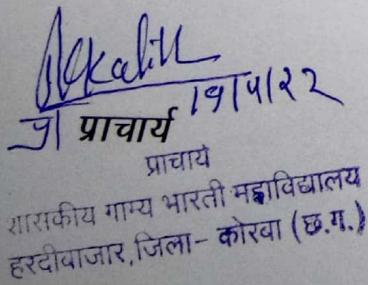 19/4/22
प्राचार्य
प्राचार्य
शासकीय गाम्य भारती महाविद्यालय
हरदीवाजार, जिला- कोरवा (छ.ग.)